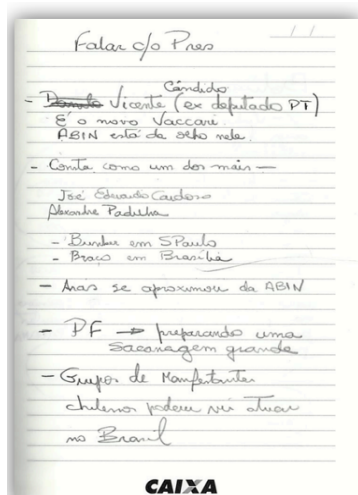 Falar c/o Pres
Cândido
- Danilo Vicente (ex deputado PT)
É o novo Vaccari.
ABIN está de olho nele.
- Conta como um dos mais —
José Eduardo Cardoso
Alexandre Padilha
- Bunker em SPaulo
- Braço em Brasília
- se aproximou da ABIN
- PF → preparando uma
sacanagem grande
- Grupos de Manifestantes
chilenos podem vir atuar
no Brasil
CAIXA